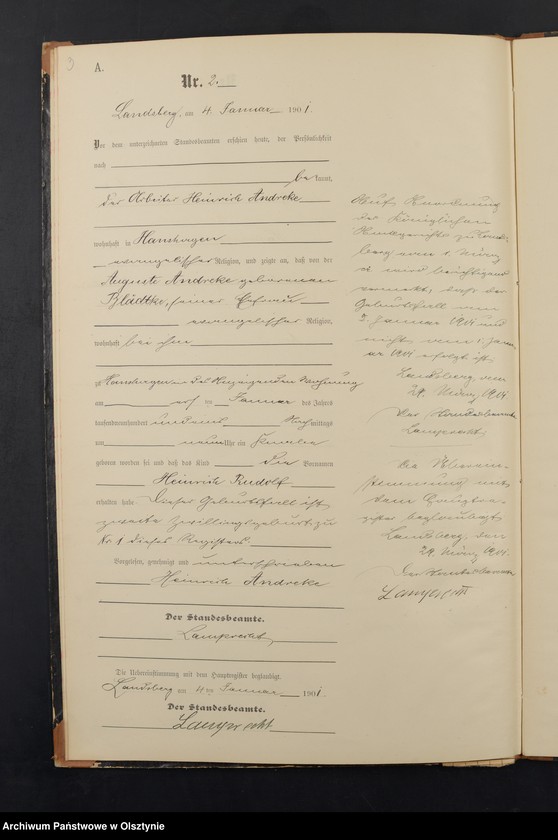 A.
Nr. 2.
Landsberg, am 4. Januar 1901.
Vor dem unterzeichneten Standesbeamten erschien heute, der Persönlichkeit
nach
bekannt,
der Arbeiter Heinrich Andreke
wohnhaft in
evangelischer Religion, und zeigte an, daß von der
Auguste Andreke geborenen
seiner Ehefrau
evangelischer Religion,
wohnhaft bei ihm
zu
am Januar des Jahres
tausendneunhundert und eins Nachmittags
um neun Uhr ein Knabe
geboren worden sei und daß das Kind die Vornamen
Heinrich Rudolf
erhalten habe. Dieser Geburtsfall ist
zweite Zwillingsgeburt zu
Nr 1 dieses Registers.
Vorgelesen, genehmigt und unterschrieben
Heinrich Andreke
Der Standesbeamte.
Lamprecht
Die Uebereinstimmung mit dem Hauptregister beglaubigt.
Landsberg am 4ten Januar 1901.
Der Standesbeamte.
Lamprecht
Auf Anordnung
des Königlichen
Amtsgerichts zu Lands-
berg vom 1. März
wird berichtigend
vermerkt, daß der
Geburtsfall am
2. Januar 1901 und
nicht am 1. Janu-
ar 1901 erfolgt ist.
Landsberg, am
29. März 1901.
Der Standesbeamte
Lamprecht
Die Überein-
stimmung mit
dem Hauptre-
gister beglaubigt
Landsberg, den
29. März 1901.
Der Standesbeamte
Lamprecht
Archiwum Państwowe w Olsztynie